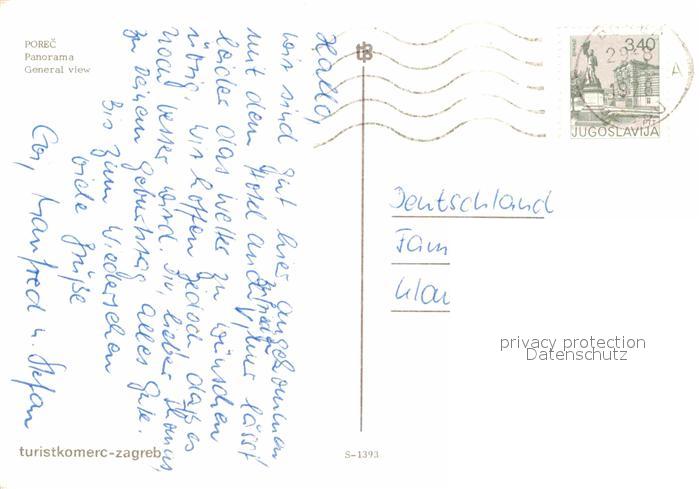 POREČ
Panorama
General view
Hallo,
wir sind gut hier angekommen
mit dem Hotel auch zufrieden, nur lässt
leider das Wetter zu wünschen
übrig, wir hoffen jedoch daß es
noch besser wird. Dir, lieber Thomas,
zu Deinem Geburtstag alles Gute.
Bis zum Wiedersehen
viele Grüße
Manfred u. Stefan
turistkomerc-zagreb
S-1393
3,40
JUGOSLAVIJA
Deutschland
Fam
privacy protection
Datenschutz